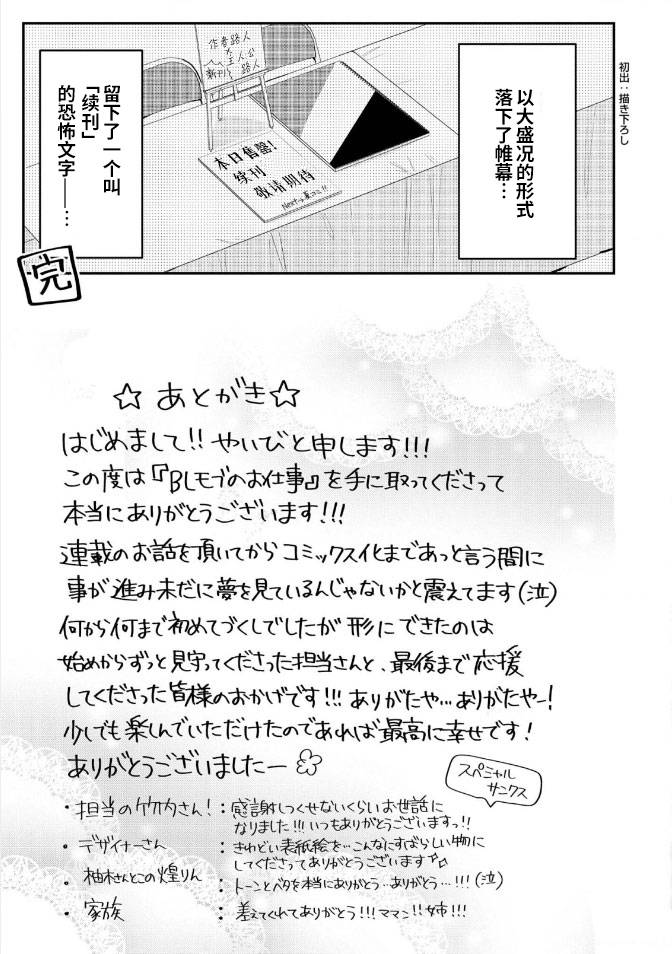 初出：描き下ろし
以大盛况的形式
落下了帷幕…
作者路人
×
主人公
新刊 路人
本日售罄！
续刊
敬请期待
Nextは夏コミ!!
留下了一个叫
「续刊」
的恐怖文字——…
完
☆あとがき☆
はじめまして!! やいびと申します!!!
この度は『BLモブのお仕事』を手に取ってくださって
本当にありがとうございます!!!
連載のお話を頂いてからコミックス化まであっと言う間に
事が進み未だに夢を見ているんじゃないかと震えてます(泣)
何から何まで初めてづくしでしたが形にできたのは
始めからずっと見守ってくださった担当さんと、最後まで応援
してくださった皆様のおかげです!!! ありがたや…ありがたやー!
少しでも楽しんでいただけたのであれば最高に幸せです!
ありがとうございましたー
スペシャル
サンクス
・担当のケケタさん!：感謝しつくせないくらいお世話に
なりました!!! いつもありがとうございますっ!!
・デザイナーさん：きわどい表紙絵を…こんなにすばらしい物に
してくださってありがとうございます
・柚木さんとこの煌りん：トーンとベタを本当にありがとう…ありがとう…!!! (泣)
・家族：差えてくれてありがとう!!! ママン!! 姉!!!